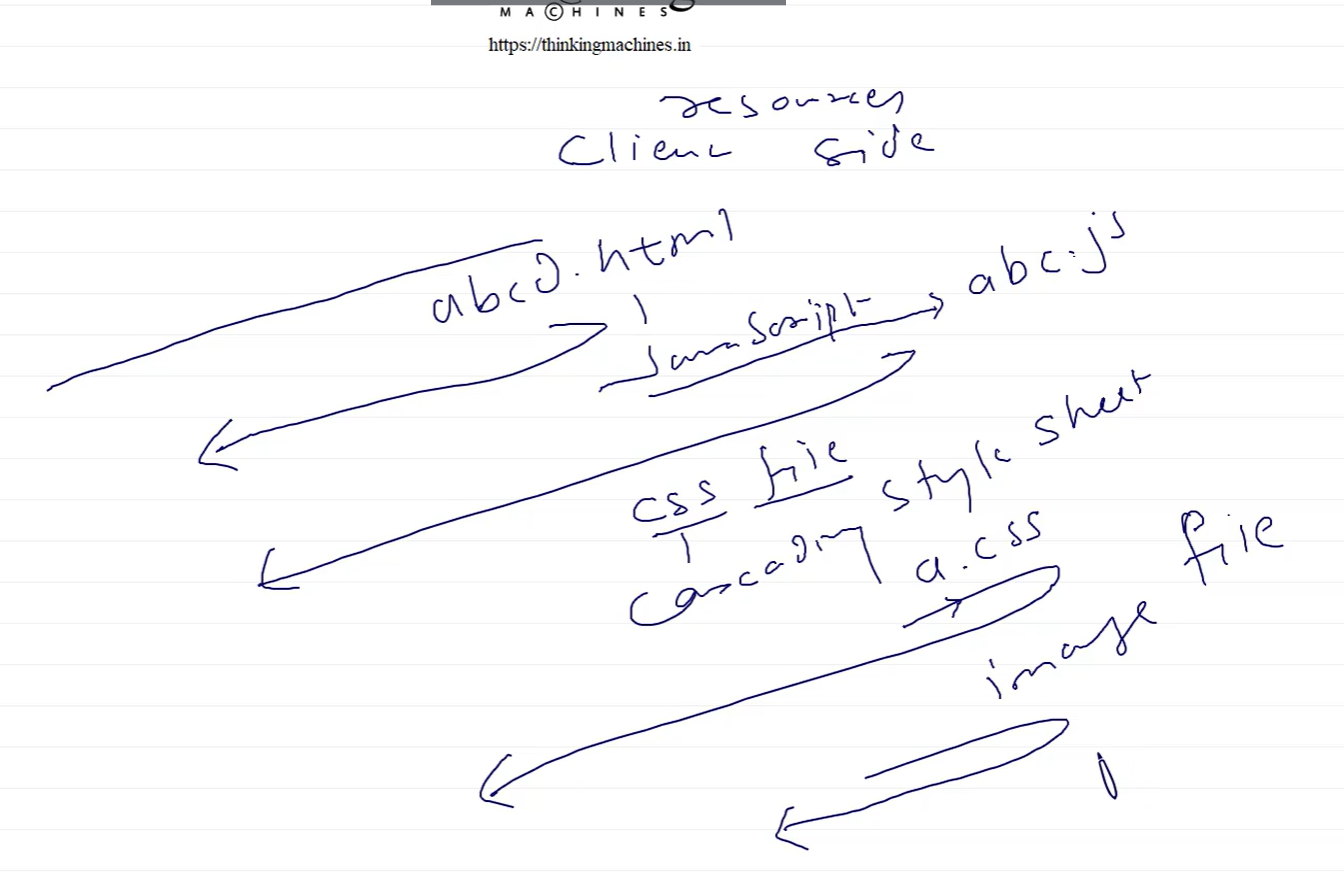 MACHINES
https://thinkingmachines.in
resources
Client side
abcd.html
JavaScript
abc.js
css file
cascading style sheet
a.css
image file